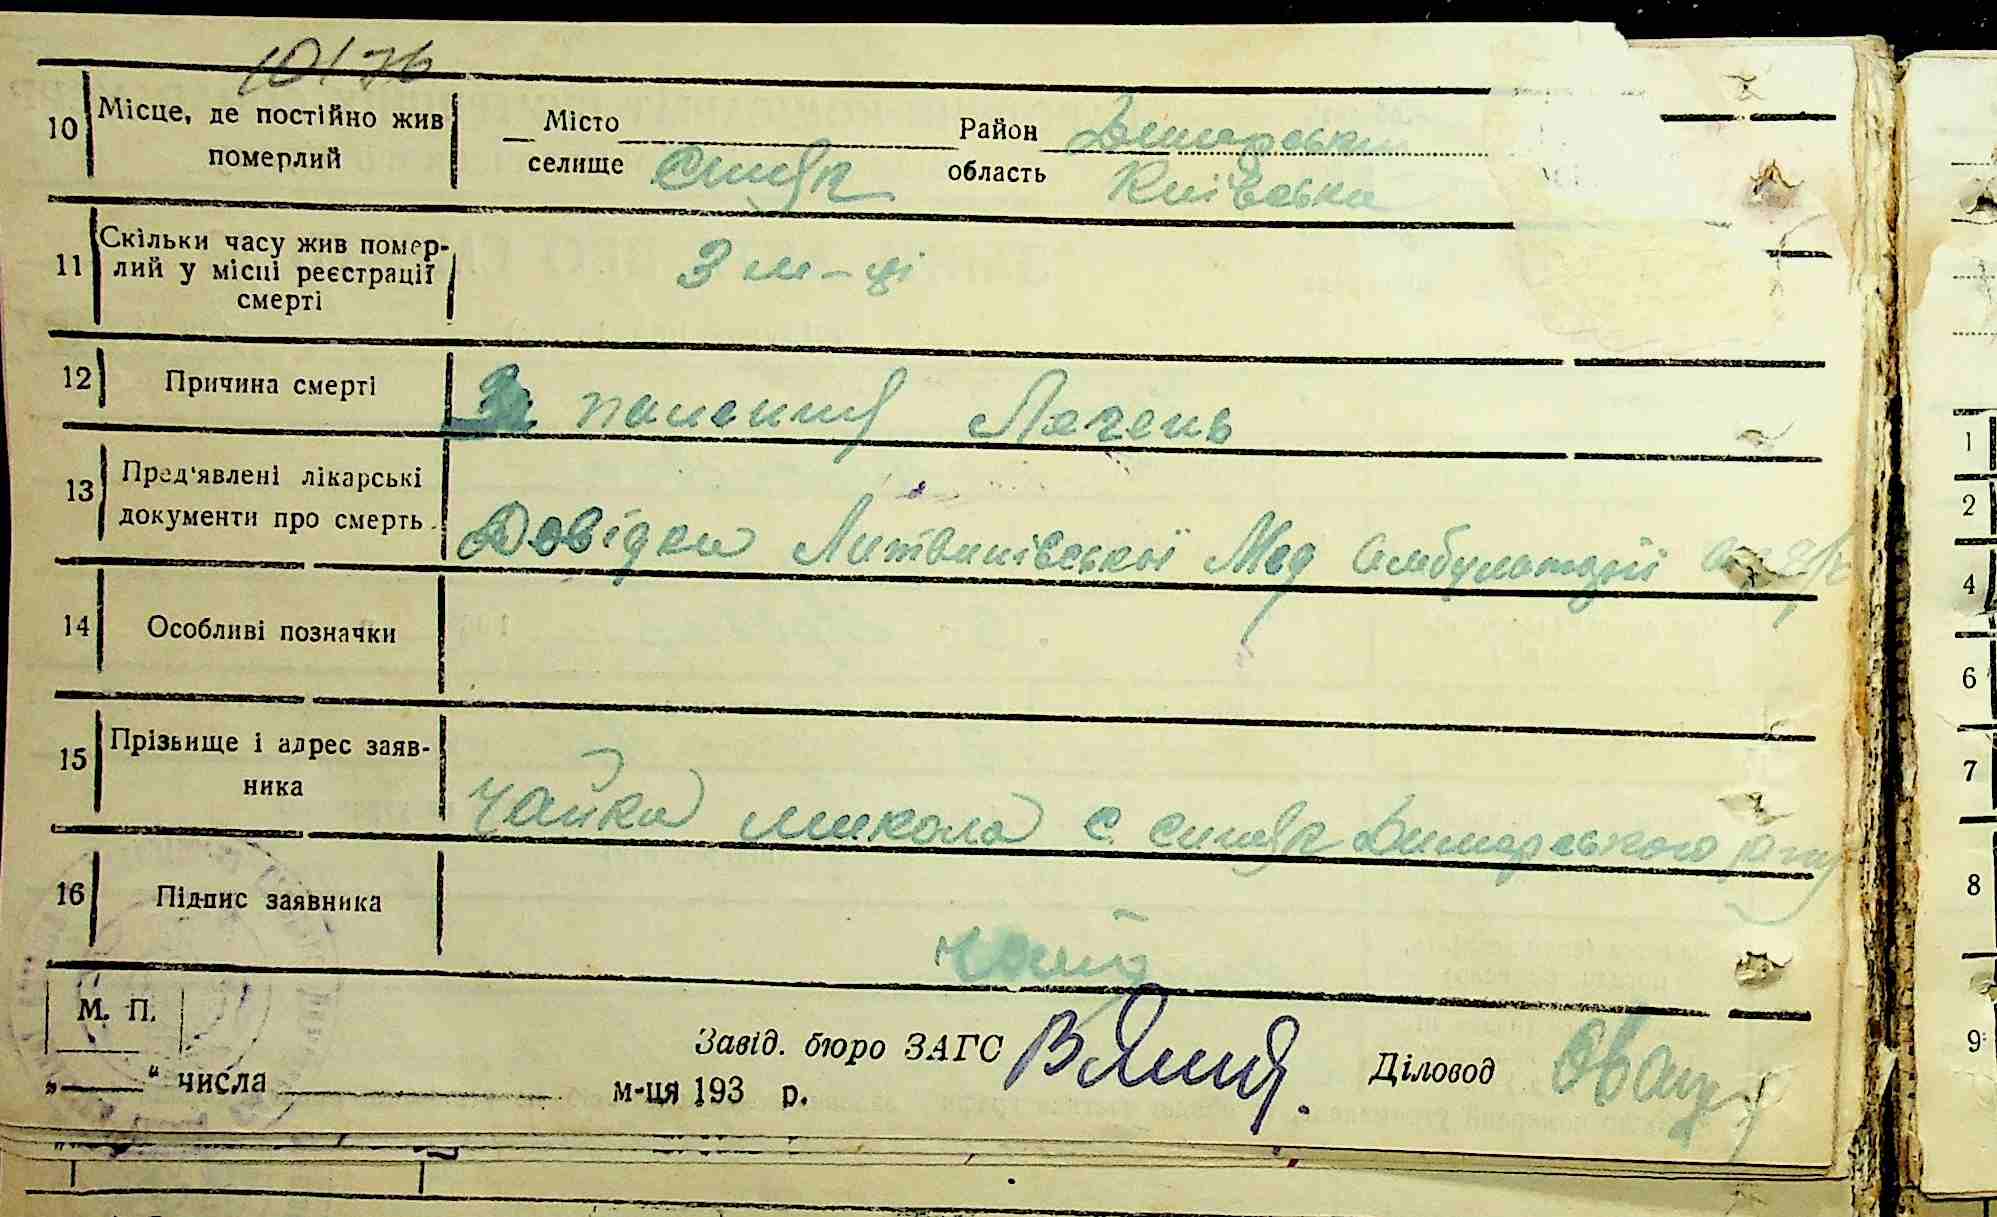 10/76
10 Місце, де постійно жив померлий Місто Район Димерський
селище Синяк область Київська
11 Скільки часу жив помер-
лий у місці реєстрації
смерті 3 м-ці
12 Причина смерті Запалення Легень
13 Пред'явлені лікарські
документи про смерть Довідка Литвинівської Мед амбулаторії
14 Особливі позначки
15 Прізьище і адрес заяв-
ника Чайка микола с. синяк Димерського р-ну
16 Підпис заявника Чайка
М. П.
Завід. бюро ЗАГС Діловод
„ “ числа м-ця 193 р.
1
2
4
6
7
8
9